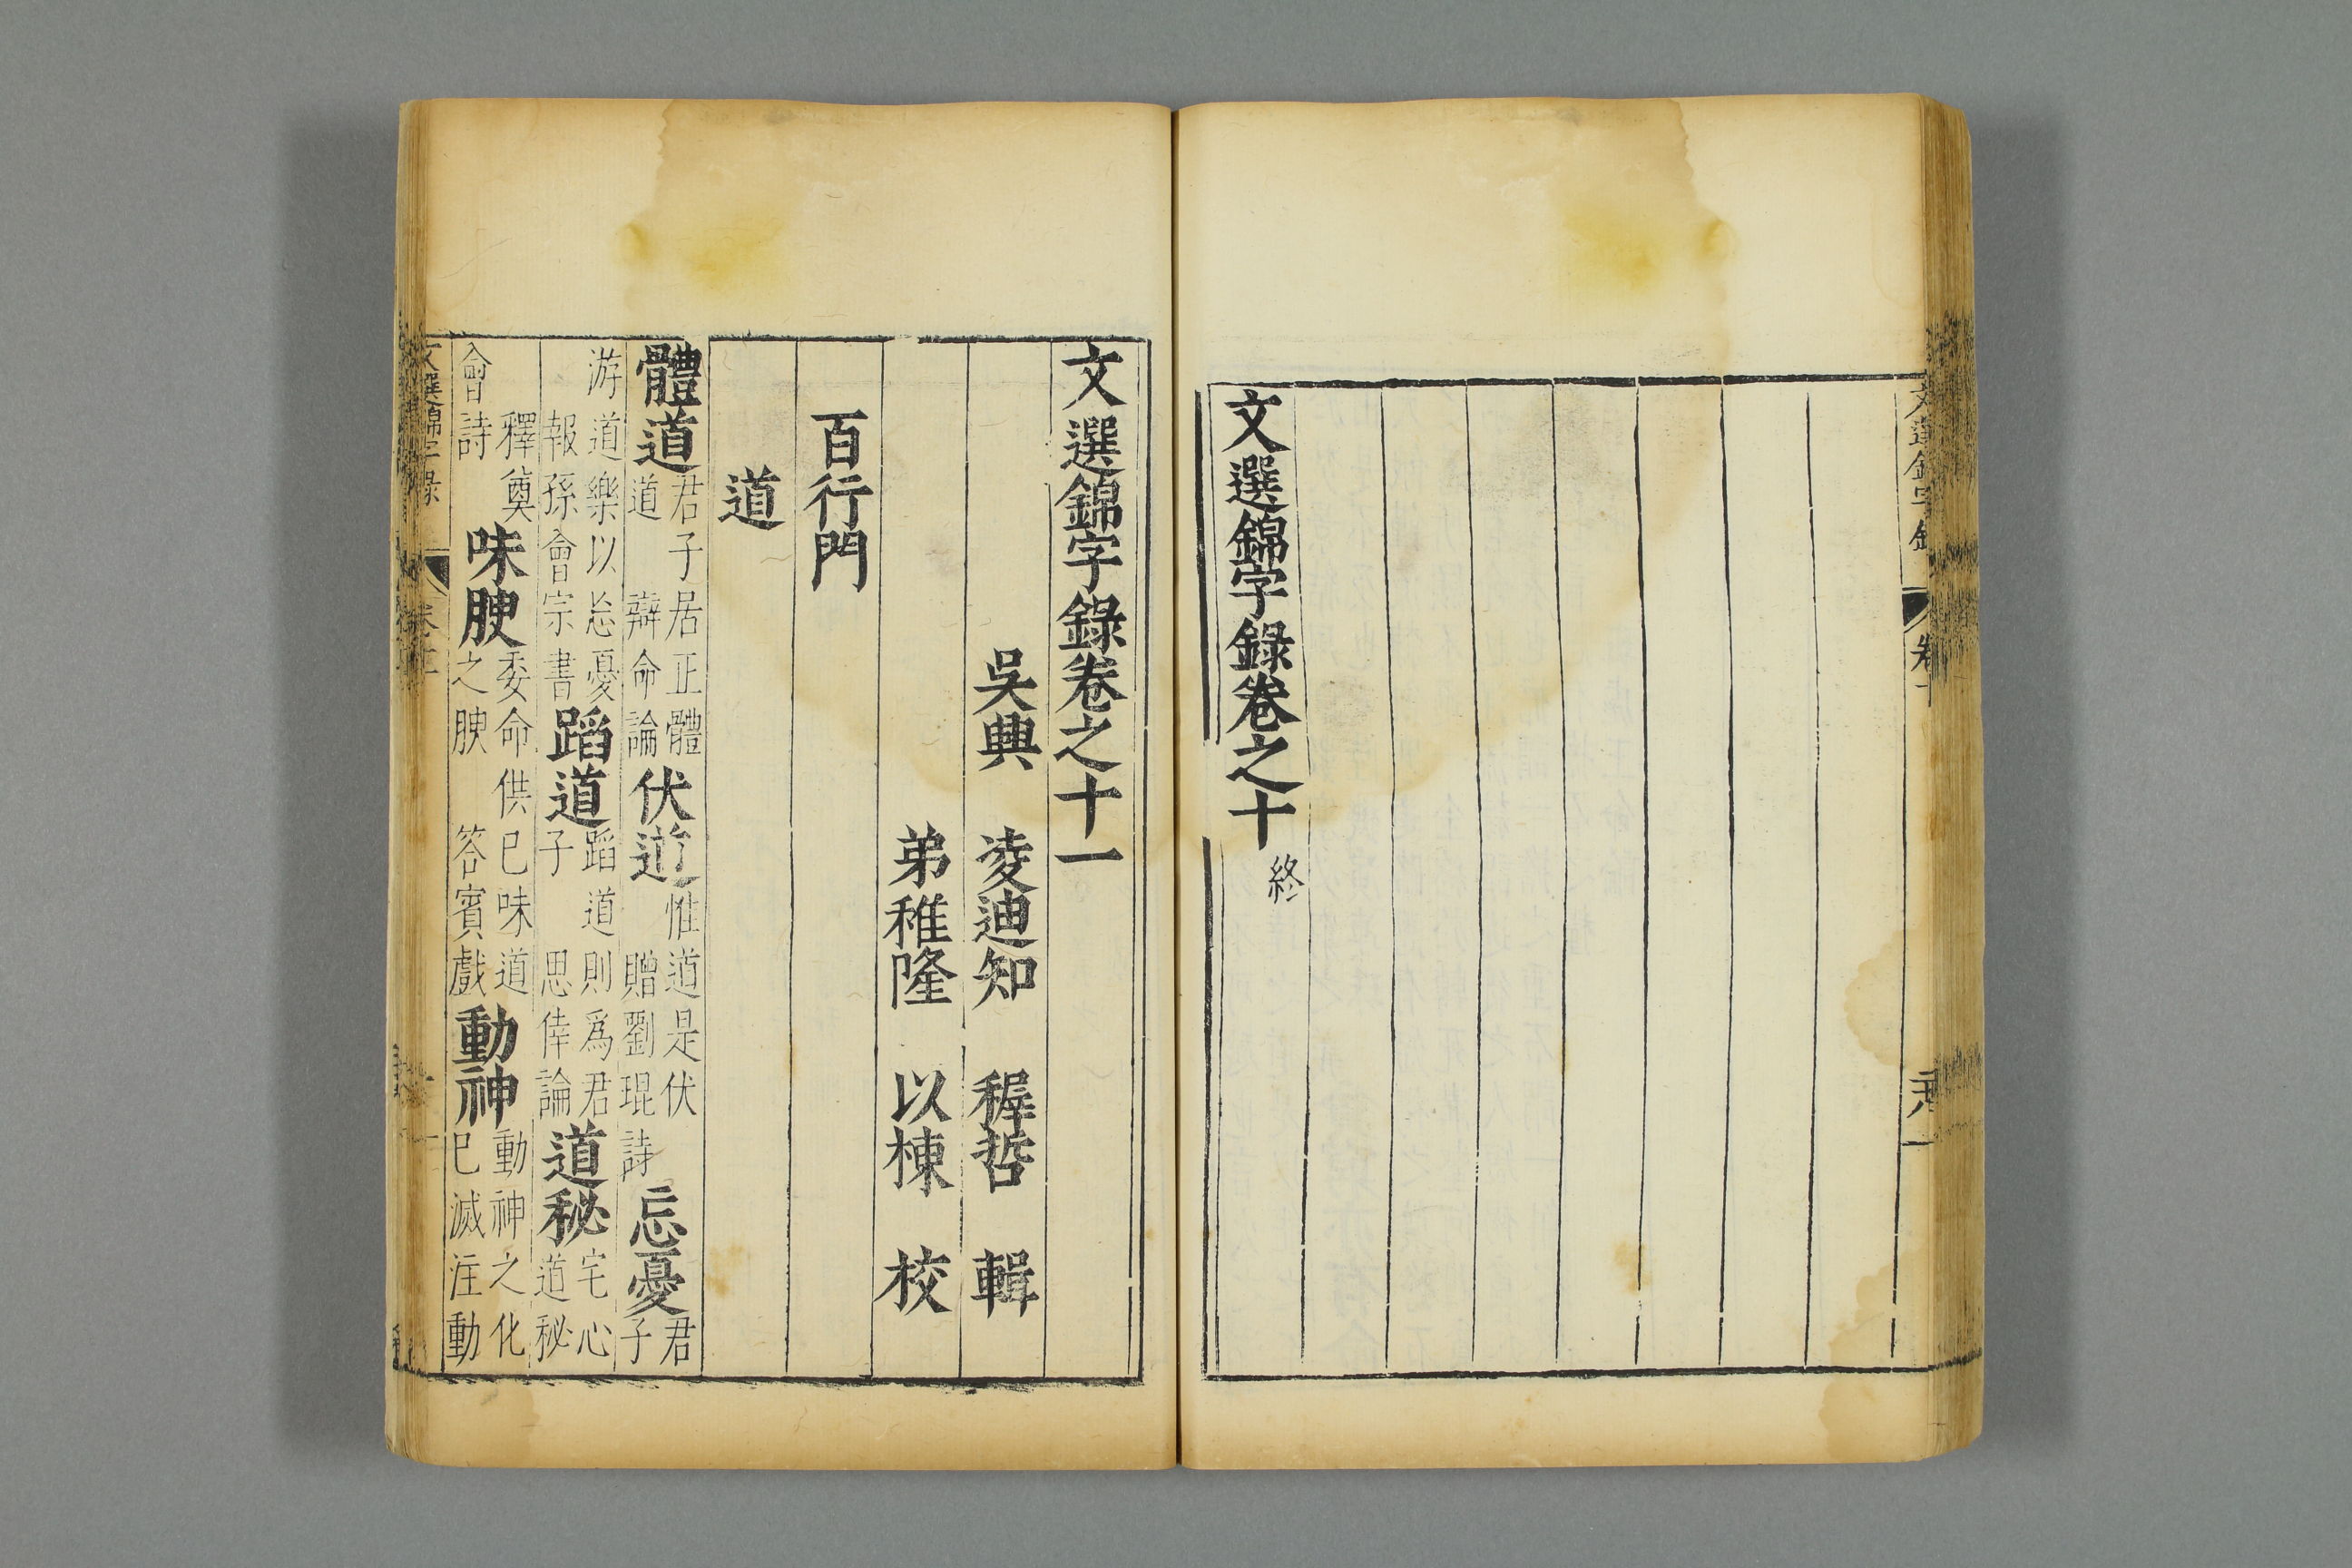 文選錦字錄 卷十
文選錦字錄卷之十 終
文選錦字錄卷之十一
吳興 凌迪知 穉哲 輯
弟稚隆 以棟 校
百行門
道
體道 君子居正體道 辯命論 伏道 惟道是伏 贈劉琨詩 忘憂 君子
游道樂以忘憂 報孫會宗書 蹈道 蹈道則爲君子 思倖論 道秘 宅心道秘
釋奠會詩 味腴 委命供已味道之腴 答賓戲 動神 動神之化已滅注動
文選錦字錄